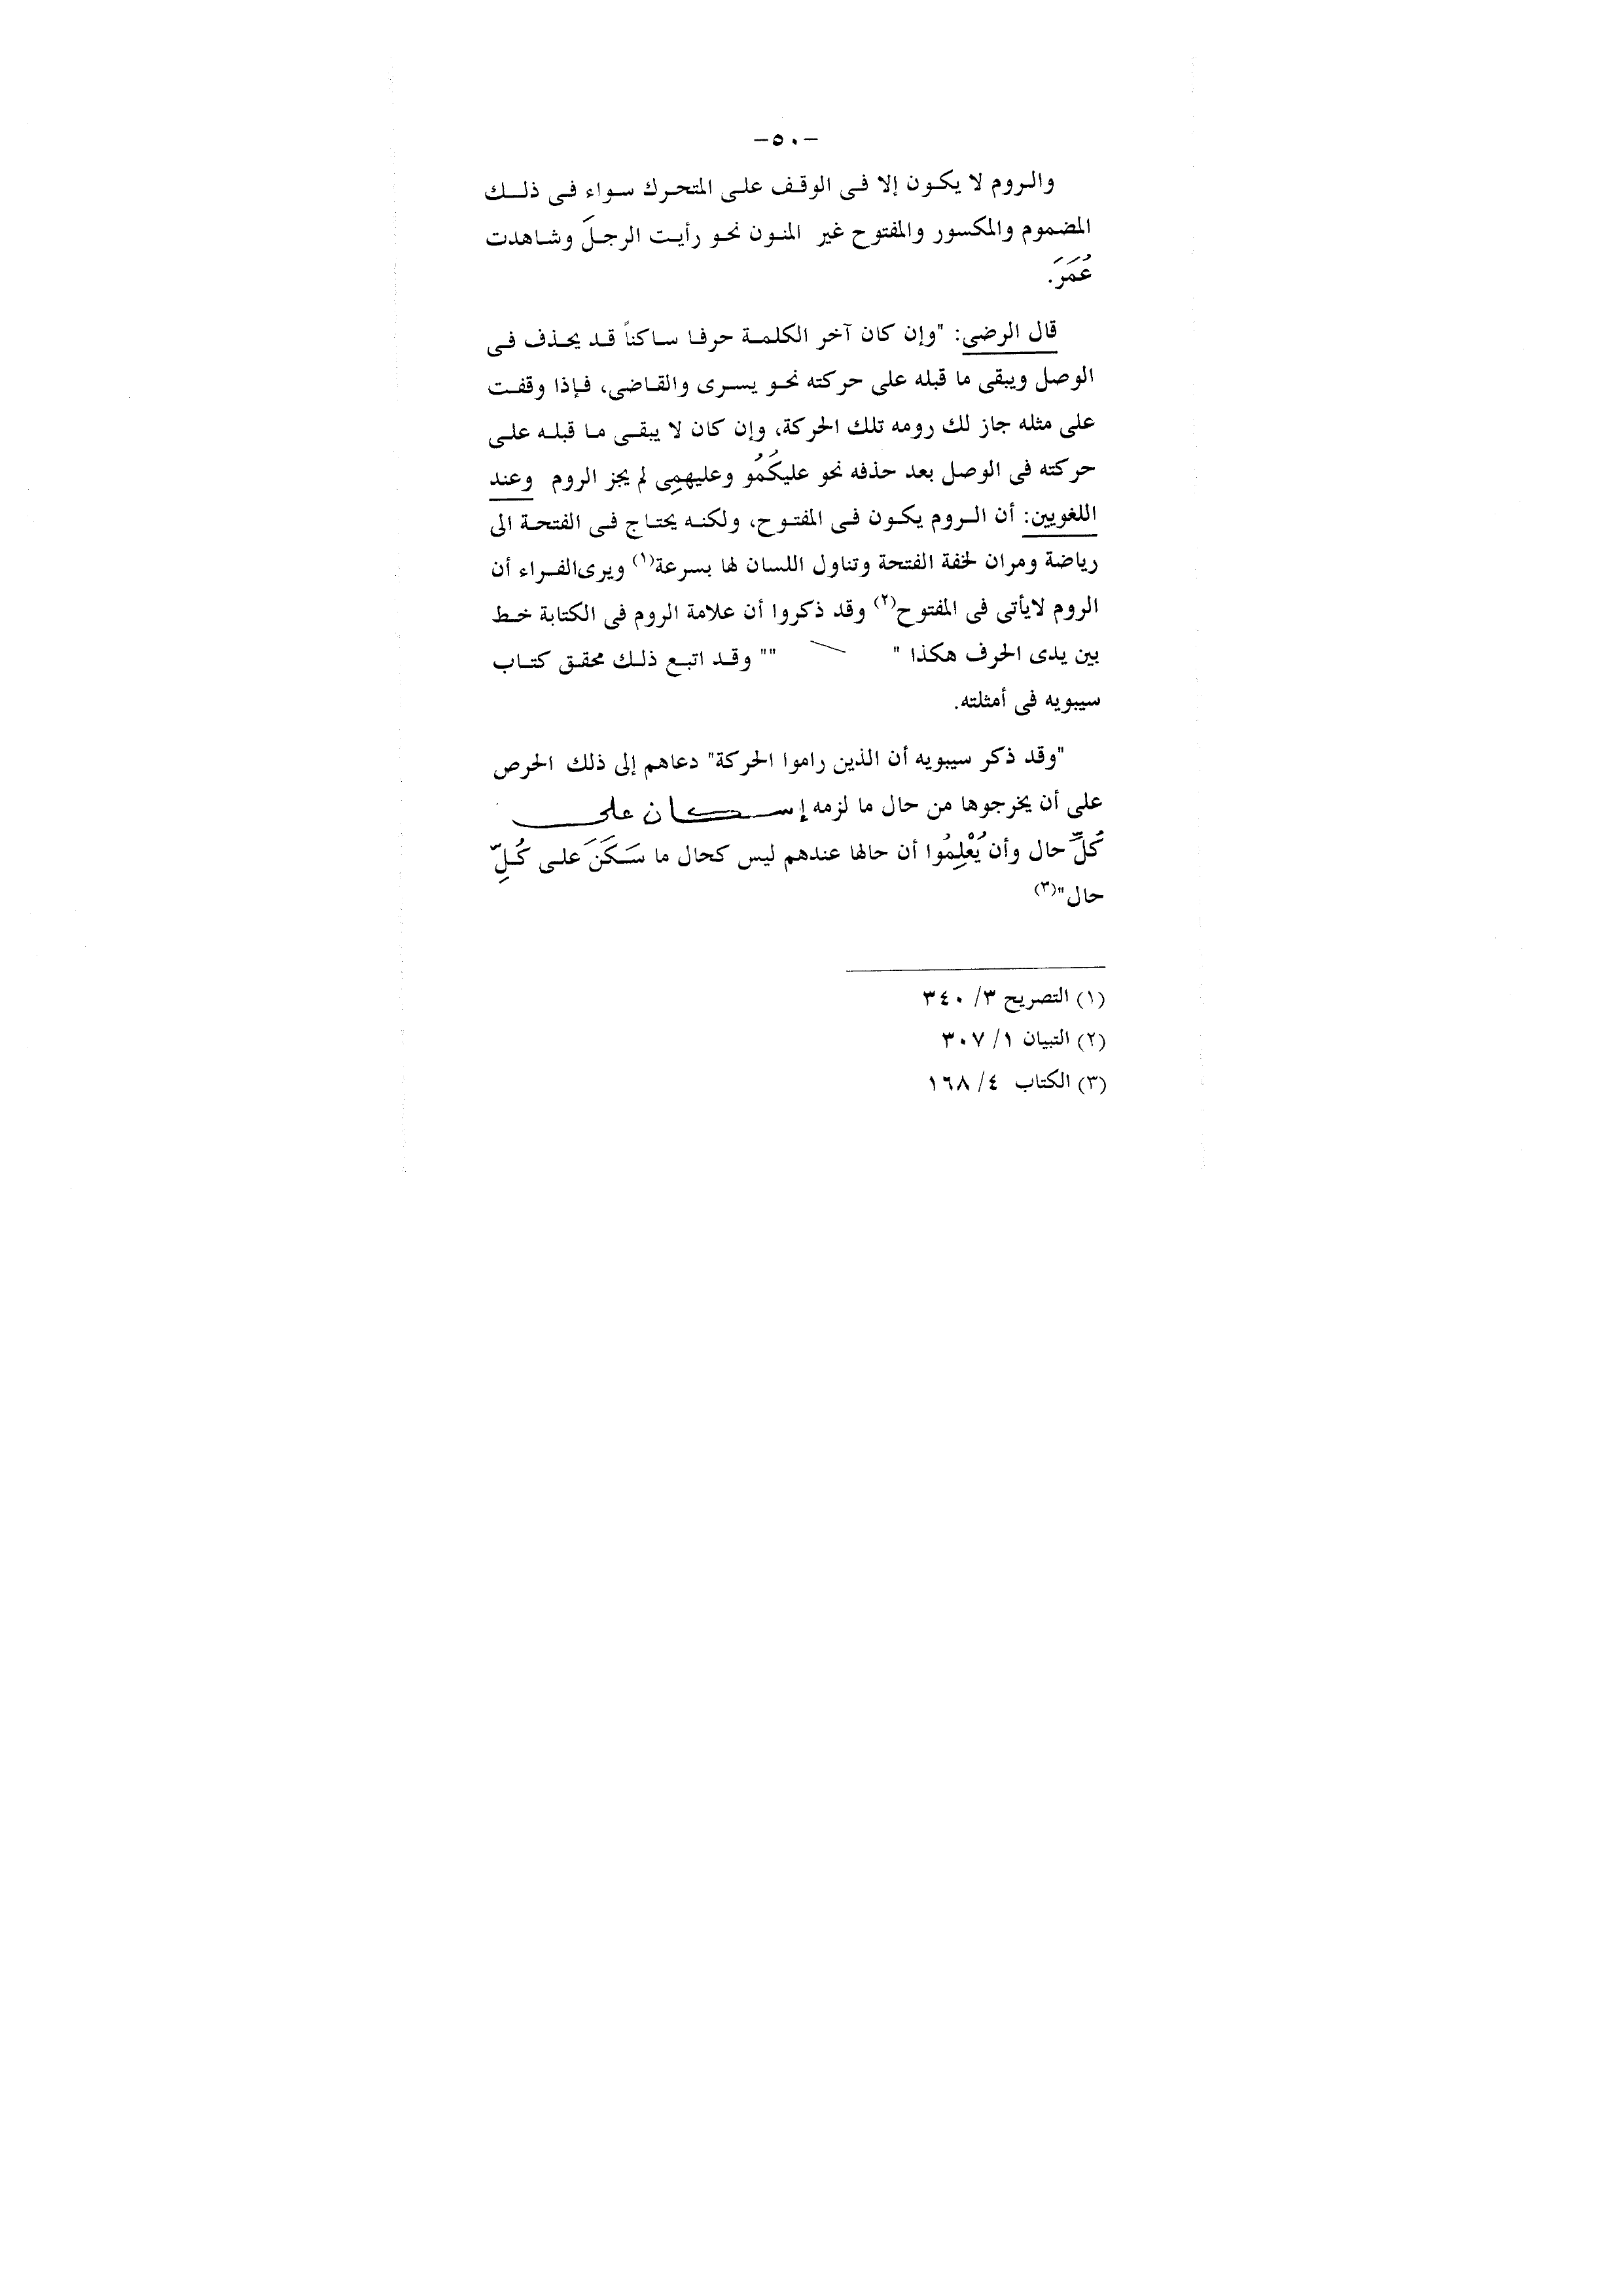 -٥٠-
والروم لا يكون إلا فى الوقف على المتحرك سواء فى ذلك
المضموم والمكسور والمفتوح غير المنون نحو رأيت الرجلَ وشاهدت
عُمَرَ.
قال الرضى: "وإن كان آخر الكلمة حرفا ساكناً قد يحذف فى
الوصل ويبقى ما قبله على حركته نحو يسرى والقاضى، فإذا وقفت
على مثله جاز لك رومه تلك الحركة، وإن كان لا يبقى ما قبله على
حركته فى الوصل بعد حذفه نحو عليكُمُو وعليهمِى لم يجز الروم وعند
اللغويين: أن الروم يكون فى المفتوح، ولكنه يحتاج فى الفتحة الى
رياضة ومران لخفة الفتحة وتناول اللسان لها بسرعة(١) ويرى الفراء أن
الروم لايأتى فى المفتوح(٢) وقد ذكروا أن علامة الروم فى الكتابة خط
بين يدى الحرف هكذا " \ "" وقد اتبع ذلك محقق كتاب
سيبويه فى أمثلته.
"وقد ذكر سيبويه أن الذين راموا الحركة" دعاهم إلى ذلك الحرص
على أن يخرجوها من حال ما لزمه إسكان على
كُلِّ حال وأن يُعْلِمُوا أن حالها عندهم ليس كحال ما سَكَنَ على كُلِّ
حال"(٣)
(١) التصريح ٣/ ٣٤٠
(٢) التبيان ١/ ٣٠٧
(٣) الكتاب ٤/ ١٦٨